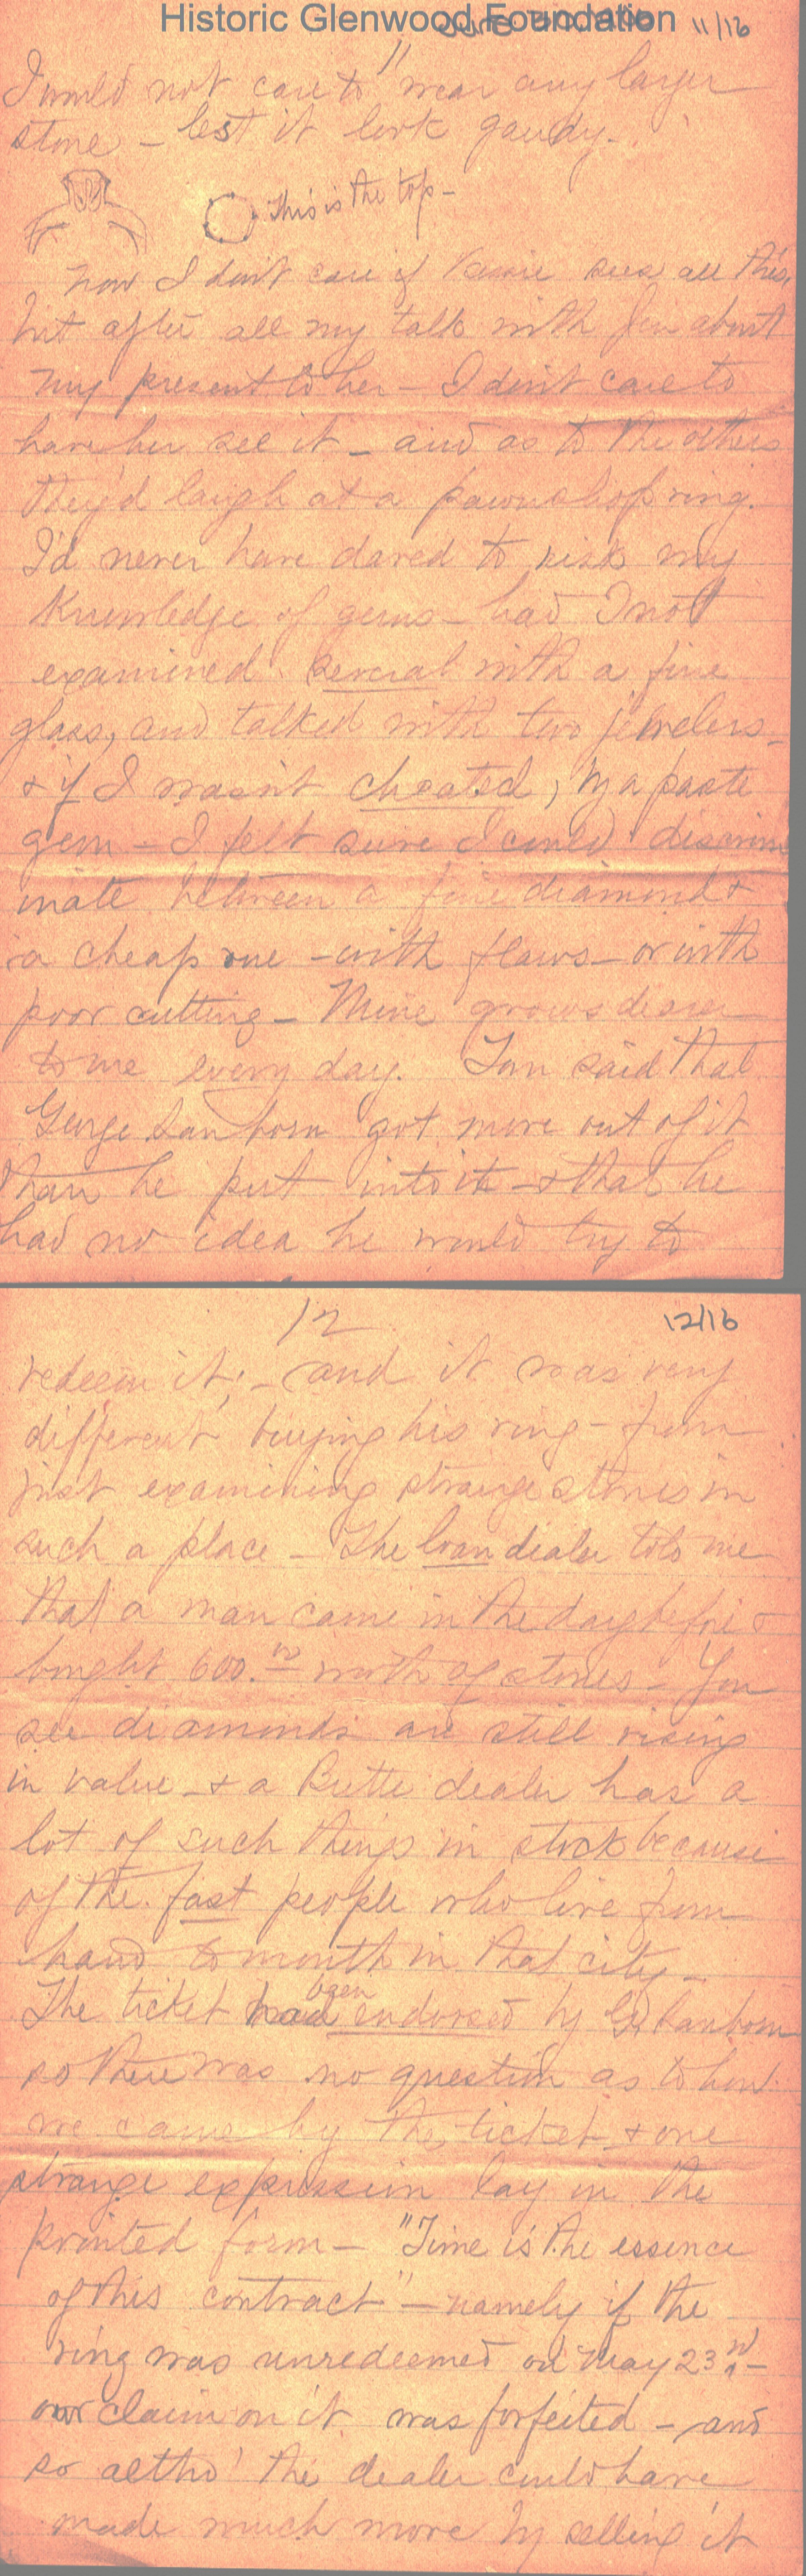 Historic Glenwood Foundation
11/16
11
I would not care to wear any larger
stone - lest it look gaudy -
This is the top -
Now I don't care if sees all this,
but after all my talk with about
my present to her - I don't care to
have her see it - and as to the others
they'd laugh at a pawnshop ring.
I'd never have dared to risk my
knowledge of gems - had I not
examined several with a fine
glass, and talked with two jewelers -
& if I wasn't cheated, by a paste
gem - I felt sure I could discrim
inate between a fine diamond &
a cheap one - with flaws - or with
poor cutting - Mine grows dearer
to me every day. Tom said that
George Sanborn got more out of it
than he put into it - & that he
had no idea he would try to
12
12/16
redeem it; - and it was very
different buying his ring - from
just examining strange stones in
such a place - The loan dealer told me
that a man came in the day before &
bought 600.00 worth of stones - You
see diamonds are still rising
in value - & a Butte dealer has a
lot of such things in stock because
of the fast people who live from
hand to mouth in that city -
The ticket had been endorsed by G. Sanborn
so there was no question as to how
we came by the ticket & one
strange expression lay in the
printed form - "Time is the essence
of this contract" - namely if the
ring was unredeemed on May 23rd -
our claim on it was forfeited - and
so altho' the dealer could have
made much more by selling it